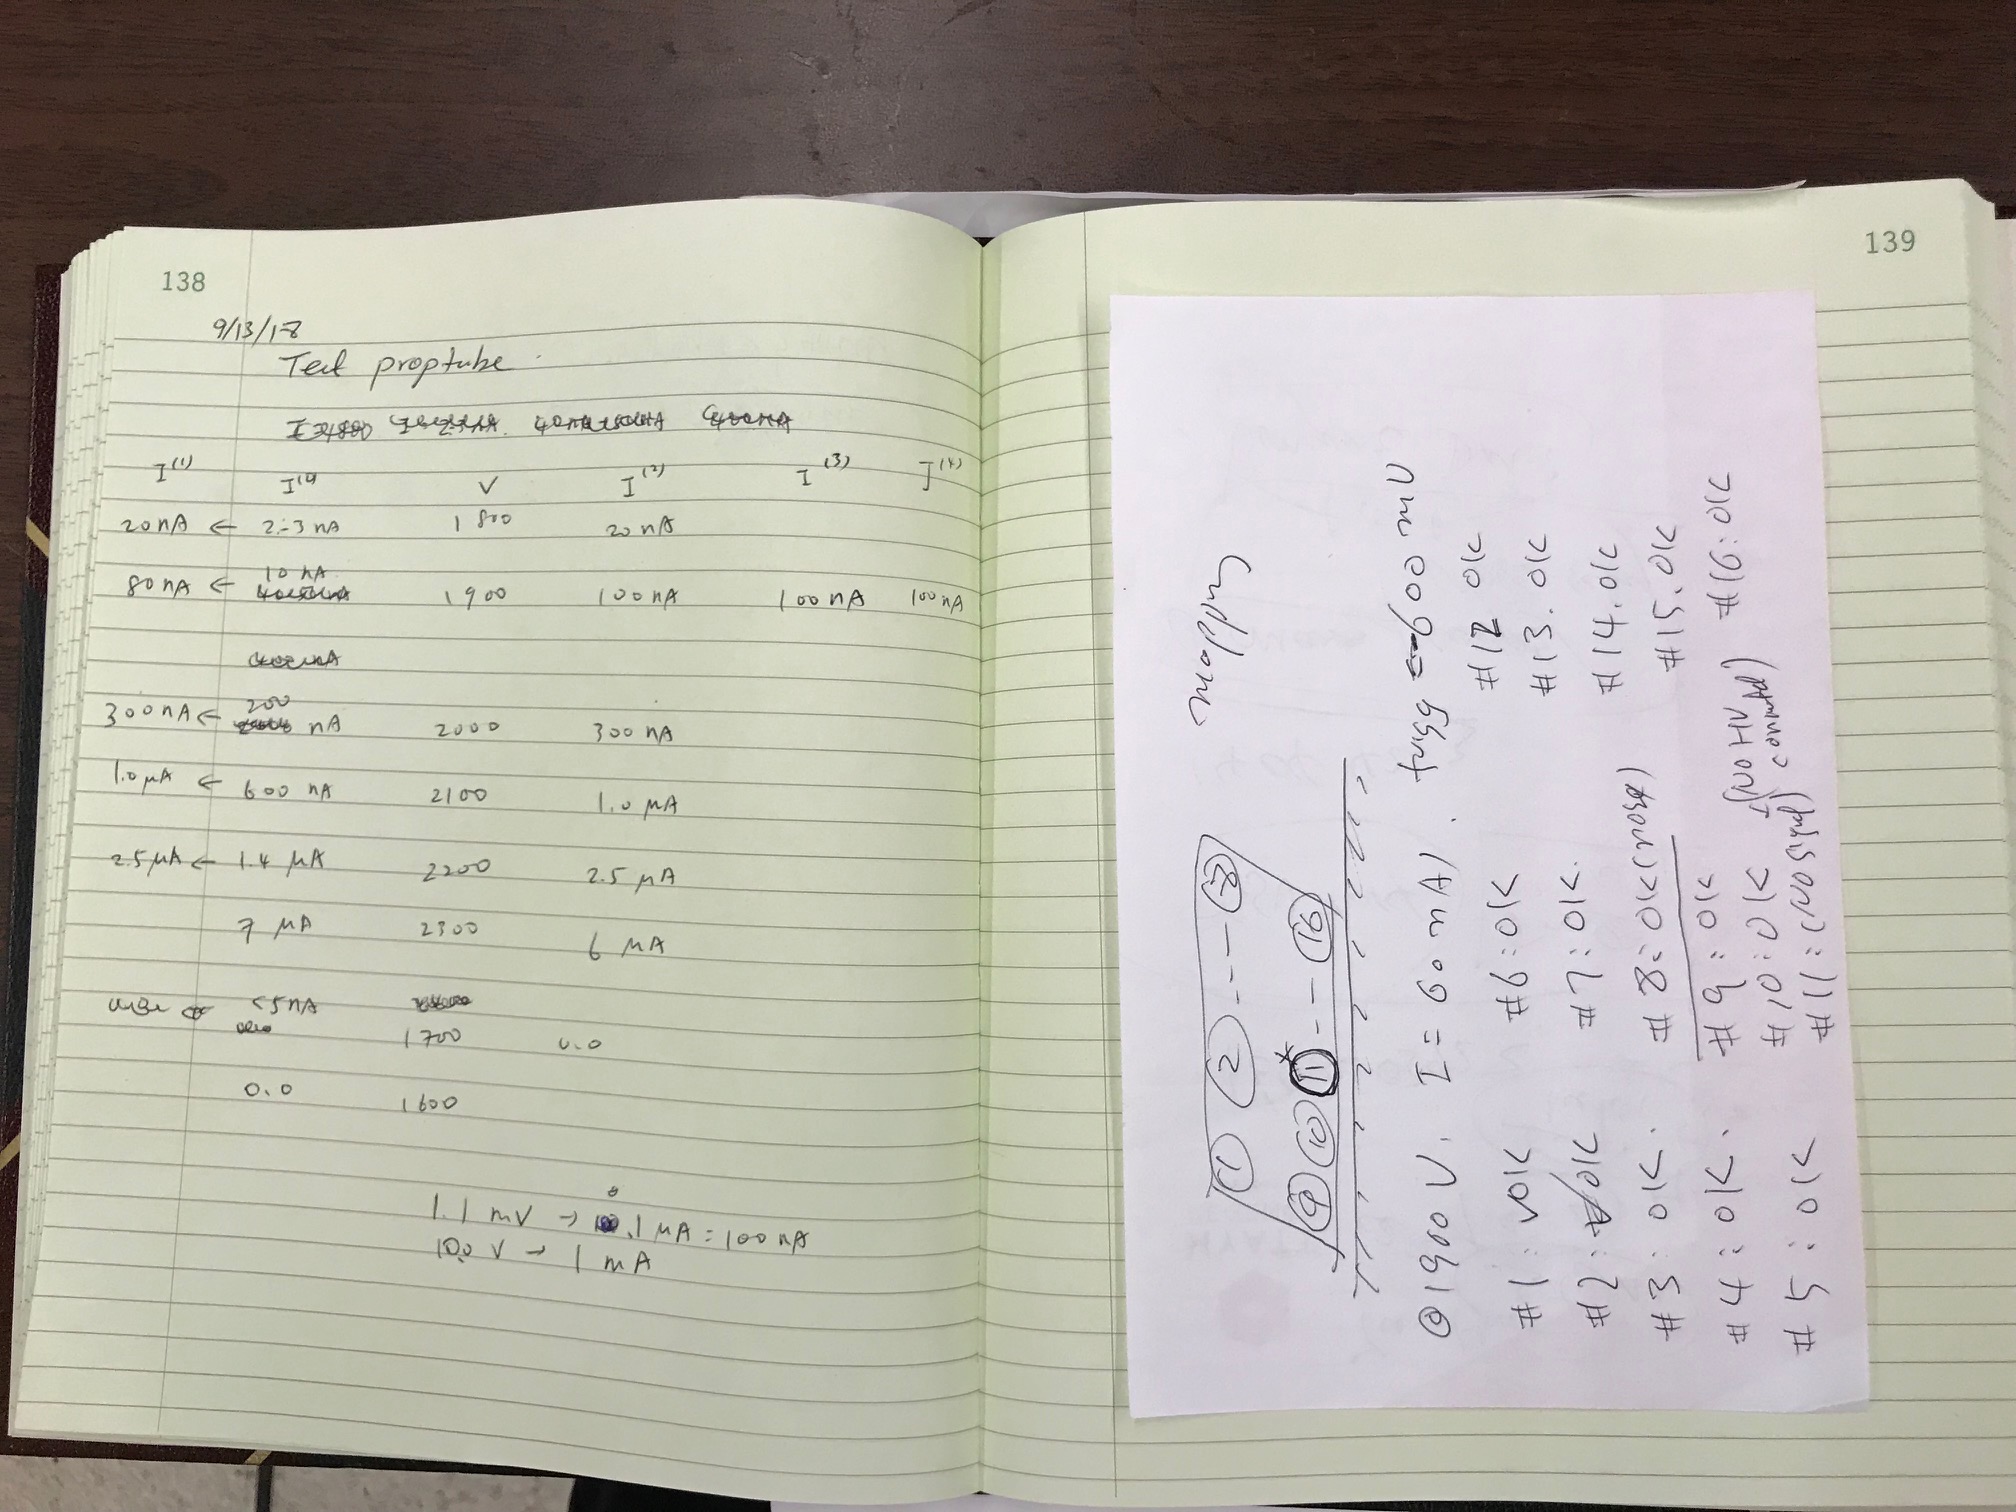 138
9/13/18
Test proptube
I(1) I(1) V I(2) I(3) I(4)
20 nA ← 2-3 nA 1800 20 nA
80 nA ← 10 nA 1900 100 nA 100 nA 100 nA
300 nA ← 200 nA 2000 300 nA
1.0 μA ← 600 nA 2100 1.0 μA
2.5 μA ← 1.4 μA 2200 2.5 μA
7 μA 2300 6 μA
<5 nA
1700 0.0
0.0 1600
1.1 mV → 0.1 μA = 100 nA
10.0 V → 1 mA
139
mapping
1 2 --- 8
9 10 11* -- 16
@ 1900 V. I = 60 nA). trigg = -600 mV
#1: OK #6: OK #12 OK
#2: OK #7: OK. #13. OK
#3: OK. #8: OK (noise) #14. OK
#4: OK. #9: OK #15. OK
#5: OK #10: OK #16: OK
#11: (NO signal) (NO HV connected)